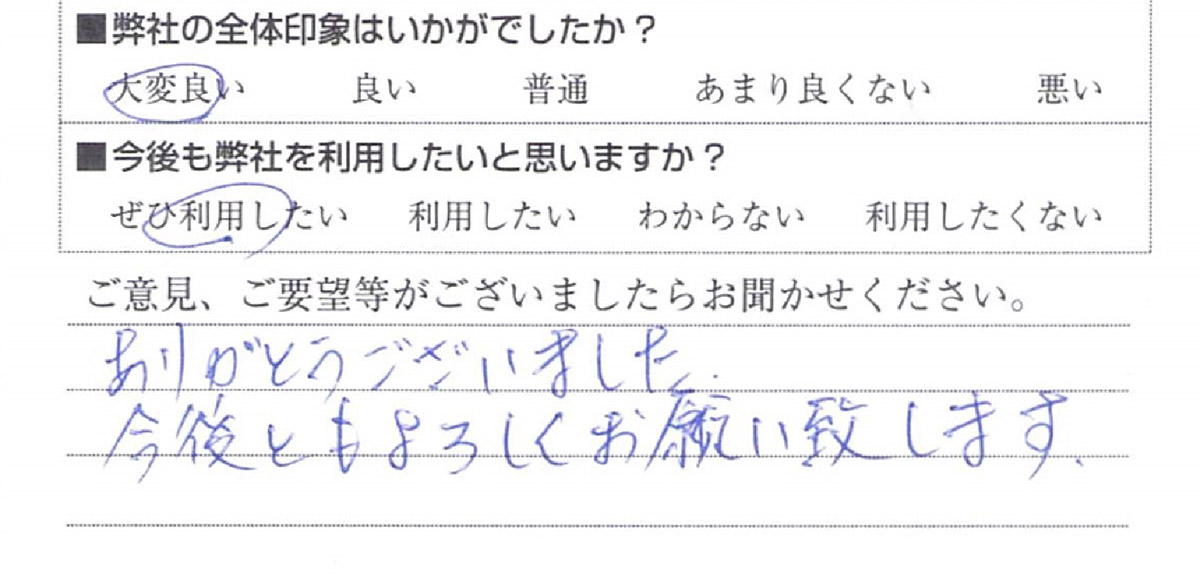 ■弊社の全体印象はいかがでしたか？
大変良い 良い 普通 あまり良くない 悪い
■今後も弊社を利用したいと思いますか？
ぜひ利用したい 利用したい わからない 利用したくない
ご意見、ご要望等がございましたらお聞かせください。
ありがとうございました.
今後ともよろしくお願い致します.